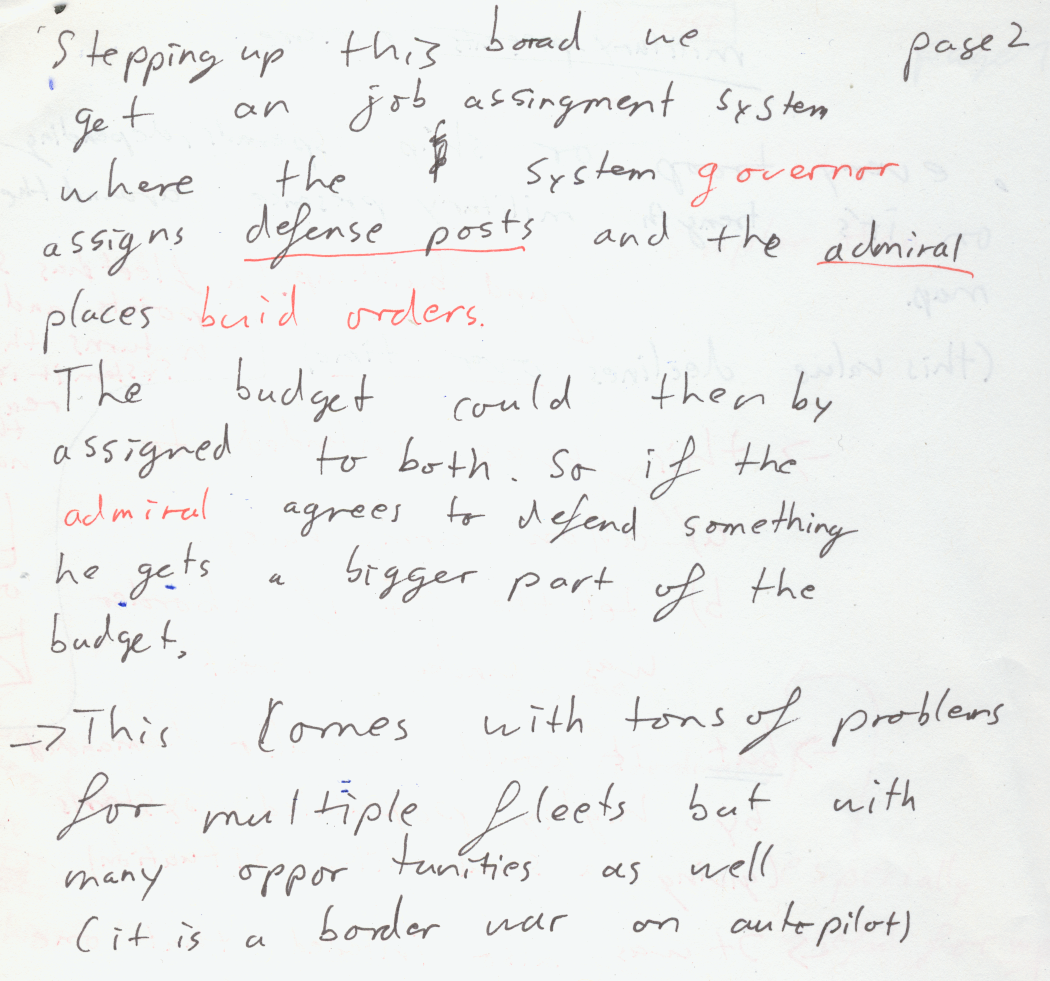 Stepping up this borad we page 2
get an job assingment system
where the system governor
assigns defense posts and the admiral
places buid orders.
The budget could then by
assigned to both. So if the
admiral agrees to defend something
he gets a bigger part of the
budget,
→ This comes with tons of problems
for multiple fleets but with
many oppor tunities as well
(it is a border war on autopilot)